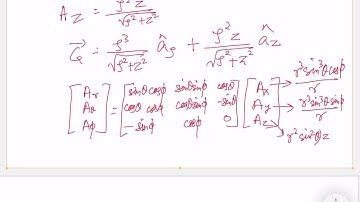 A_z = ρ² z / √(ρ²+z²)
G⃗ = ρ³ / √(ρ²+z²) â_ρ + ρ² z / √(ρ²+z²) â_z
[A_r A_θ A_φ] = [sinθ cosφ sinθ sinφ cosθ; cosθ cosφ cosθ sinφ -sinθ; -sinφ cosφ 0] [A_x A_y A_z] → r³ sin³θ cosφ / r
→ r³ sin³θ sinφ / r
→ r² sin²θ z